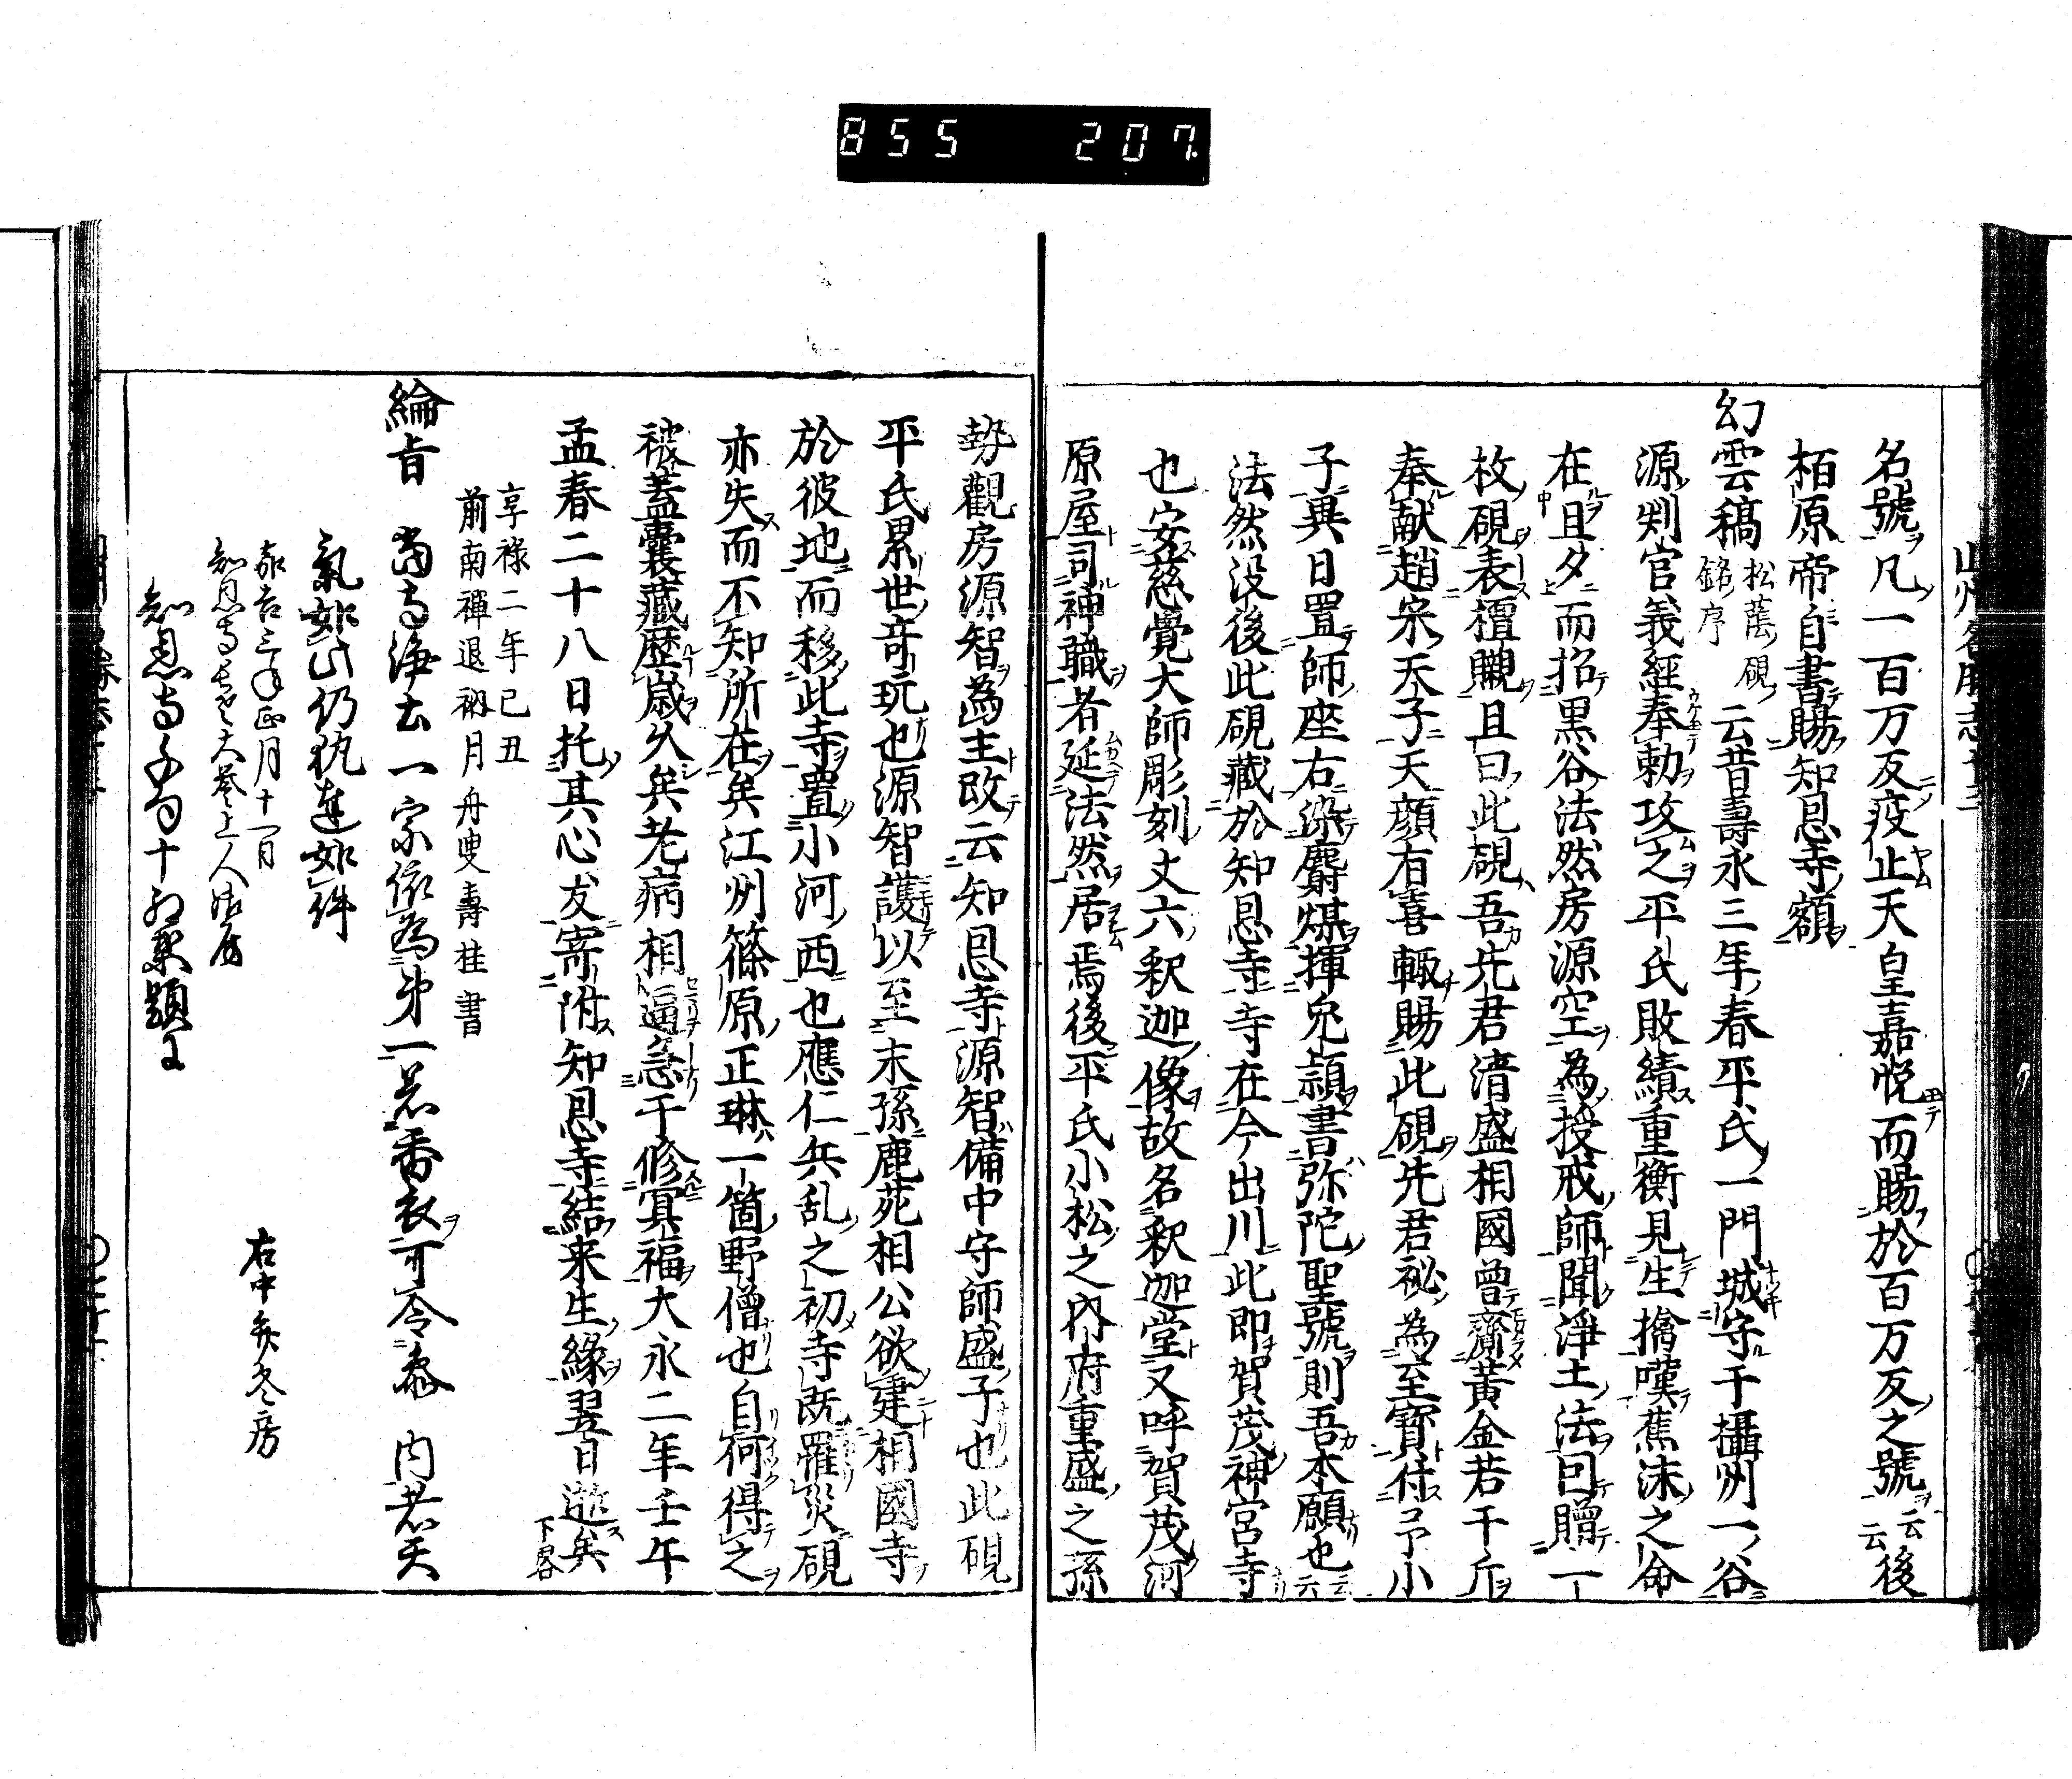 855 207
名號凡一百万反疫止天皇嘉悅而賜於百万反之號云云後
栢原帝自書賜知恩寺額
幻雲稿松蔭硯銘序云昔壽永三年春平氏一門城守于攝州一谷
源判官義經奉勅攻之平氏敗績重衡見生擒嘆蕉沫之命
在旦夕而招黒谷法然房源空為授戒師聞淨土法回贈一
枚硯表檀䞋且曰此硯吾先君清盛相國曾齎黄金若干斤
奉献趙宋天子天顔有喜輙賜此硯先君祕為至寳付予小
子異日置師座右染麝煤揮兔頴書弥陀聖號則吾本願也云云
法然没後此硯藏於知恩寺寺在今出川此即賀茂神宮寺
也安慈覺大師彫刻丈六釈迦像故名釈迦堂又呼賀茂河
原屋司神職者延法然居焉後平氏小松之内府重盛之孫
勢觀房源智為主改云知恩寺源智備中守師盛子也此硯
平氏累世竒玩也源智護以至末孫鹿苑相公欲建相國寺
於彼地而移此寺置小河西也應仁兵乱之初寺既罹災硯
亦失而不知所在矣江州篠原正琳一箇野僧也自何得之
被蓋囊藏歴歳久矣老病相逼急于修冥福大永二年壬午
孟春二十八日托其心友寄附知恩寺結来生緣翌日逝矣下畧
享禄二年已丑
前南禪退衲月舟叟壽桂書
綸旨 當寺浄土一宗依為第一若香衣可令参内者天
氣如此仍執達如件
永吉三年正月十一日 右中弁冬房
知恩寺長老大誉上人御房
知恩寺